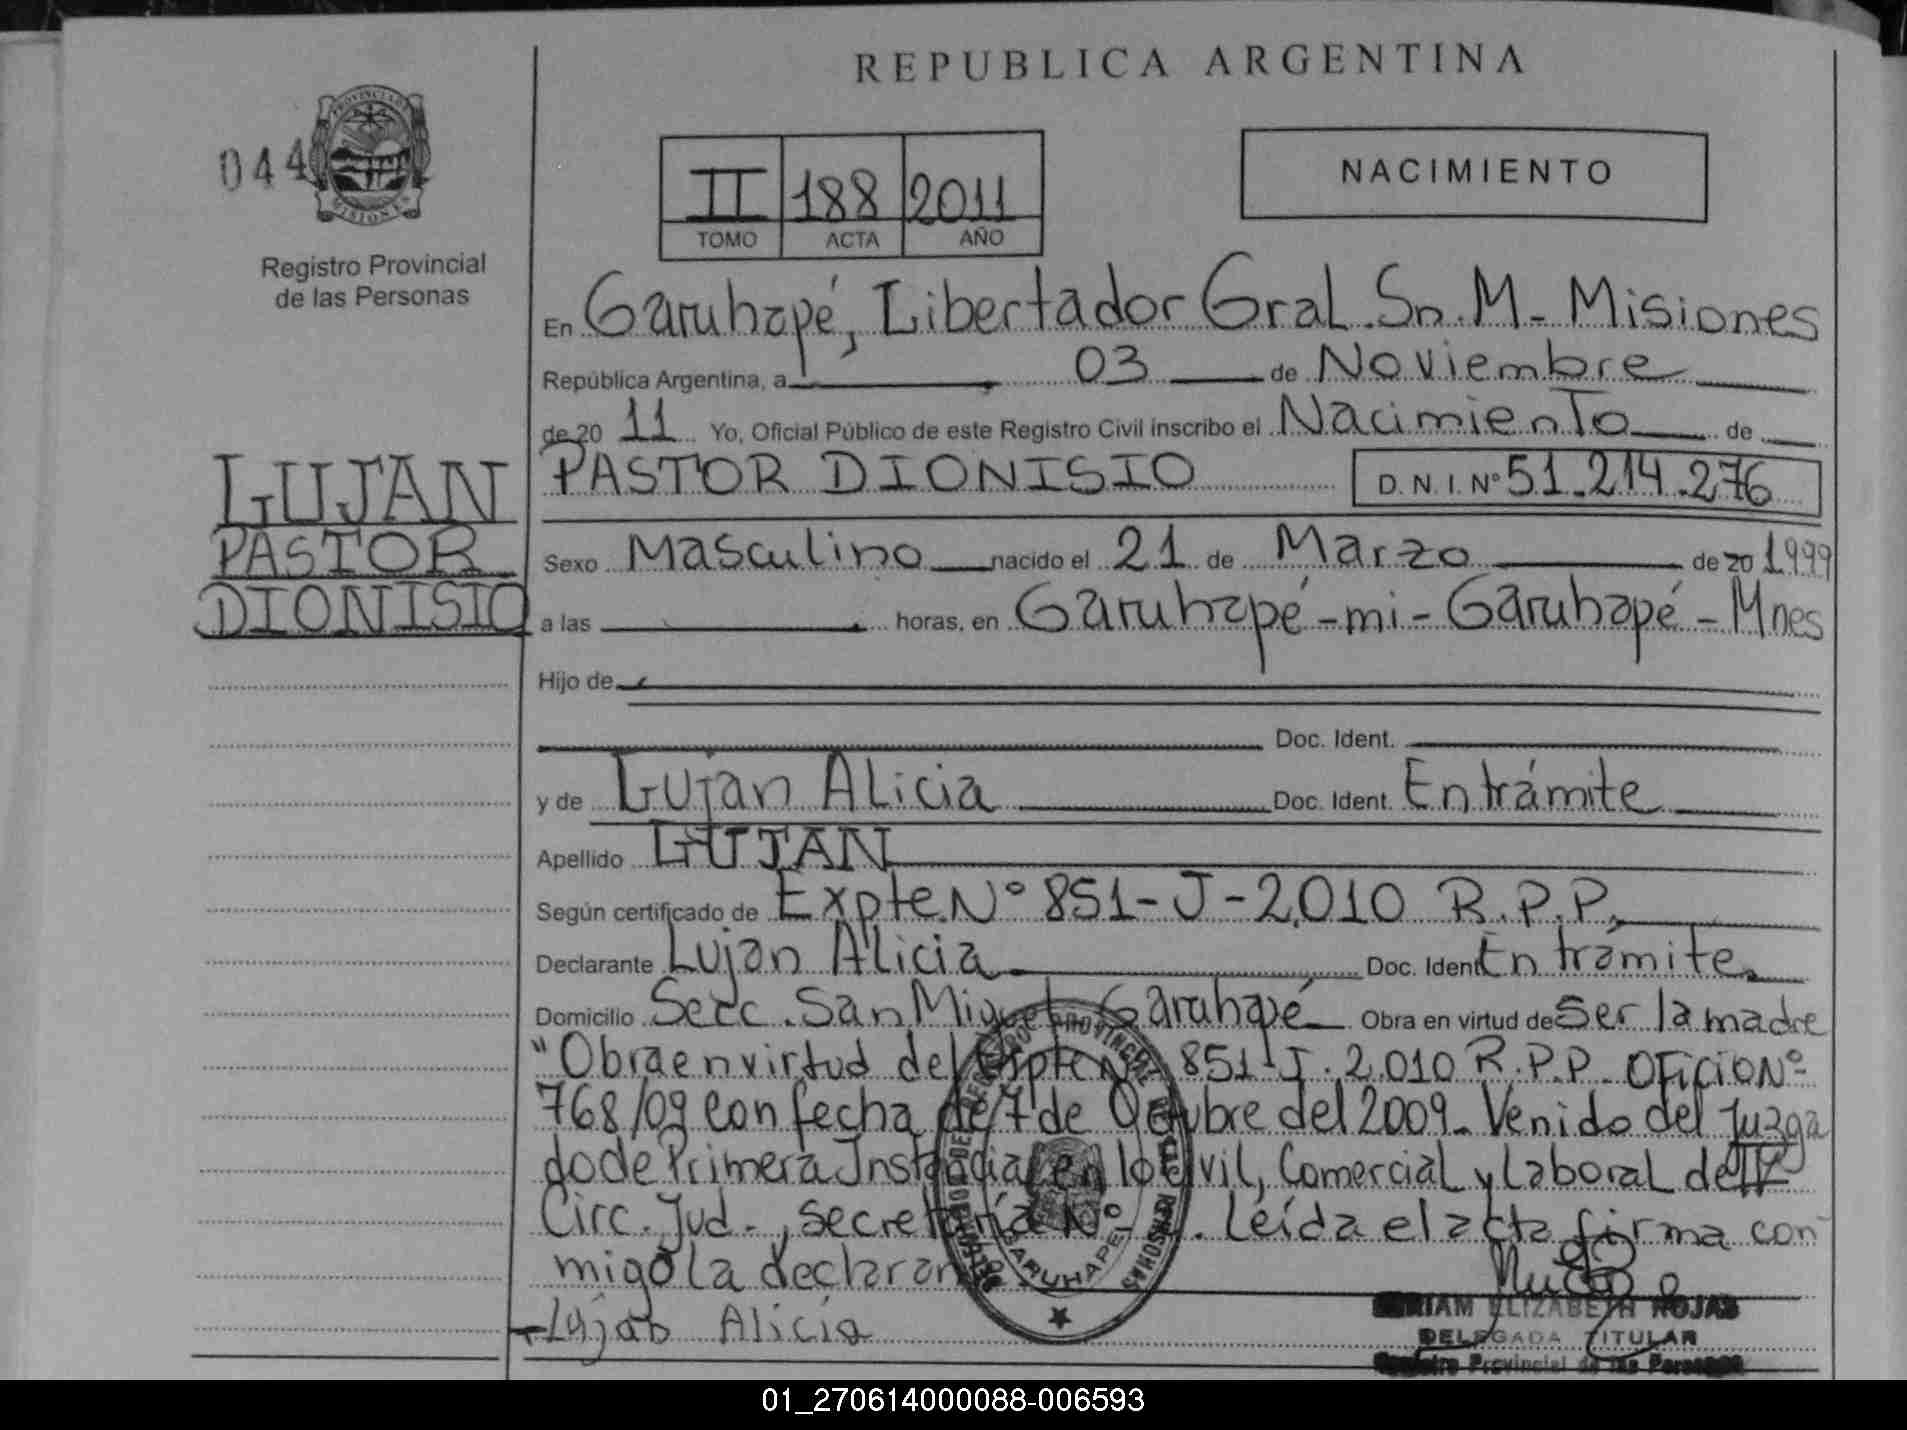 REPUBLICA ARGENTINA
044
PROVINCIA DE
MISIONES
Registro Provincial
de las Personas
II 188 2011
TOMO ACTA AÑO
NACIMIENTO
En Garuhapé, Libertador Gral. Sn. M - Misiones
República Argentina, a 03 de Noviembre
de 20 11 Yo, Oficial Público de este Registro Civil inscribo el Nacimiento de
LUJAN
PASTOR
DIONISIO
PASTOR DIONISIO D.N.I. Nº 51.214.276
Sexo Masculino nacido el 21 de Marzo de 20 1999
a las horas, en Garuhapé-mi-Garuhapé-Mnes
Hijo de
Doc. Ident.
y de Lujan Alicia Doc. Ident. En trámite
Apellido LUJAN
Según certificado de Expte Nº 851-J-2,010 R.P.P.
Declarante Lujan Alicia Doc. Ident En trámite
Domicilio Secc. San Miguel Garuhapé Obra en virtud de Ser la madre
"Obra en virtud del Expte Nº 851-J.2.010 R.P.P. Oficio Nº
768/09 con fecha de 7 de Octubre del 2009. Venido del Juzga
do de Primera Instancia en lo Civil, Comercial y Laboral de IV
Circ. Jud., secretaría Nº . Leída el acta firma con
migo la declaran
Lujan Alicia
GARUHAPE
MIRIAM ELIZABETH ROJAS
DELEGADA TITULAR
Registro Provincial de las Personas
01_270614000088-006593